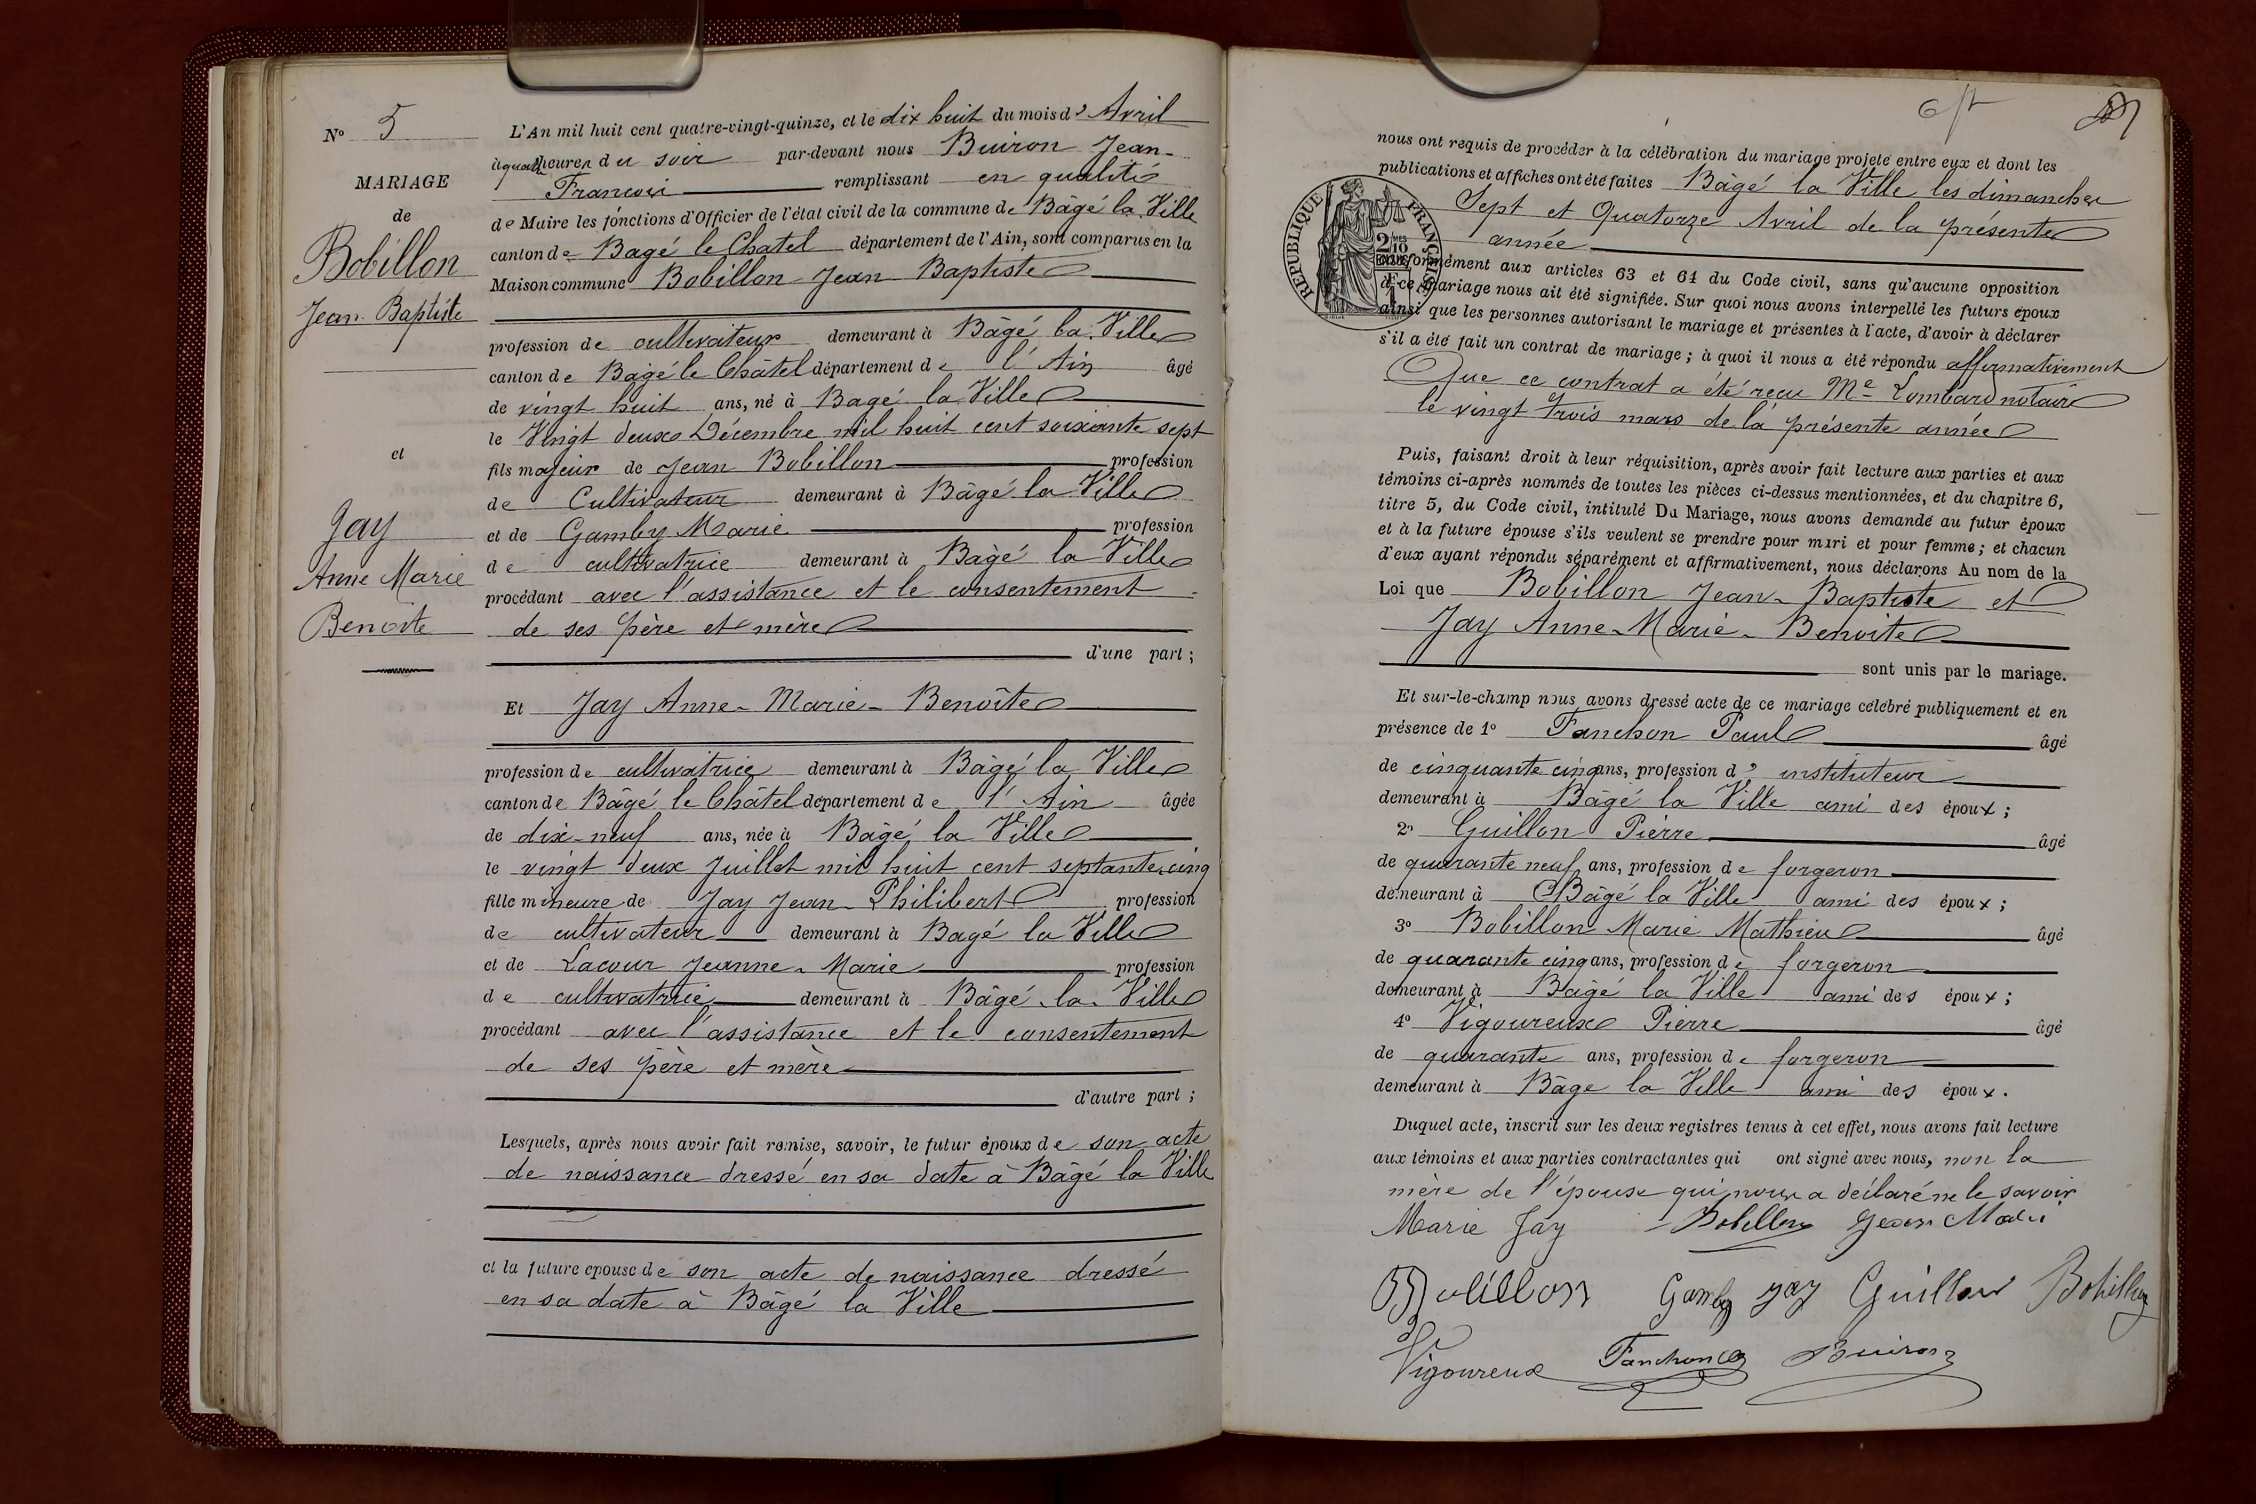 N° 5
MARIAGE
de
Bobillon
Jean Baptiste
et
Jay
Anne Marie
Benoite
L'An mil huit cent quatre-vingt-quinze, et le dix huit du mois d' Avril
à quatre heures du soir par-devant nous Buiron Jean-
François remplissant en qualité
de Maire les fonctions d'Officier de l'état civil de la commune de Bâgé la Ville
canton de Bagé le Chatel département de l'Ain, sont comparus en la
Maison commune Bobillon Jean Baptiste
profession de cultivateur demeurant à Bâgé la Ville
canton de Bâgé le Châtel département de l'Ain âgé
de vingt huit ans, né à Bagé la Ville
le Vingt deux Décembre mil huit cent soixante sept
fils majeur de Jean Bobillon profession
de Cultivateur demeurant à Bâgé la Ville
et de Gamby Marie profession
de cultivatrice demeurant à Bâgé la Ville
procédant avec l'assistance et le consentement
de ses père et mère
d'une part ;
Et Jay Anne-Marie-Benoîte
profession de cultivatrice demeurant à Bâgé la Ville
canton de Bâgé le Châtel département de l'Ain âgée
de dix-neuf ans, née à Bâgé la Ville
le vingt deux Juillet mil huit cent septante cinq
fille mineure de Jay Jean-Philibert profession
de cultivateur demeurant à Bagé la Ville
et de Lacour Jeanne-Marie profession
de cultivatrice demeurant à Bâgé-la-Ville
procédant avec l'assistance et le consentement
de ses père et mère
d'autre part ;
Lesquels, après nous avoir fait remise, savoir, le futur époux de son acte
de naissance dressé en sa date à Bâgé la Ville
et la future epouse de son acte de naissance dressé
en sa date à Bâgé la Ville
nous ont requis de procéder à la célébration du mariage projeté entre eux et dont les
publications et affiches ont été faites Bâgé la Ville les dimanches
Sept et Quatorze Avril de la présente
année
RÉPUBLIQUE FRANÇAISE
2/10
conformément aux articles 63 et 64 du Code civil, sans qu'aucune opposition
à ce mariage nous ait été signifiée. Sur quoi nous avons interpellé les futurs époux
ainsi que les personnes autorisant le mariage et présentes à l'acte, d'avoir à déclarer
s'il a été fait un contrat de mariage ; à quoi il nous a été répondu affirmativement
Que ce contrat a été reçu Me Lombard notaire
le vingt trois mars de la présente année
Puis, faisant droit à leur réquisition, après avoir fait lecture aux parties et aux
témoins ci-après nommés de toutes les pièces ci-dessus mentionnées, et du chapitre 6,
titre 5, du Code civil, intitulé Du Mariage, nous avons demandé au futur époux
et à la future épouse s'ils veulent se prendre pour mari et pour femme ; et chacun
d'eux ayant répondu séparément et affirmativement, nous déclarons Au nom de la
Loi que Bobillon Jean-Baptiste et
Jay Anne-Marie-Benoite
sont unis par le mariage.
Et sur-le-champ nous avons dressé acte de ce mariage célébré publiquement et en
présence de 1° Fanchon Paul âgé
de cinquante cinq ans, profession d' instituteur
demeurant à Bâgé la Ville ami des époux ;
2° Guillon Pierre âgé
de quarante neuf ans, profession de forgeron
demeurant à Bâgé la Ville ami des époux ;
3° Bobillon Marie Mathieu âgé
de quarante cinq ans, profession de forgeron
demeurant à Bâgé la Ville ami des époux ;
4° Vigoureux Pierre âgé
de quarante ans, profession de forgeron
demeurant à Bâge la Ville ami des époux.
Duquel acte, inscrit sur les deux registres tenus à cet effet, nous avons fait lecture
aux témoins et aux parties contractantes qui ont signé avec nous, non la
mère de l'épouse qui nous a déclaré ne le savoir
Marie Jay Bobillon Jean Marie
Bobillon Gamby Jay Guillon Bobillon
Vigoureux Fanchon Buiron